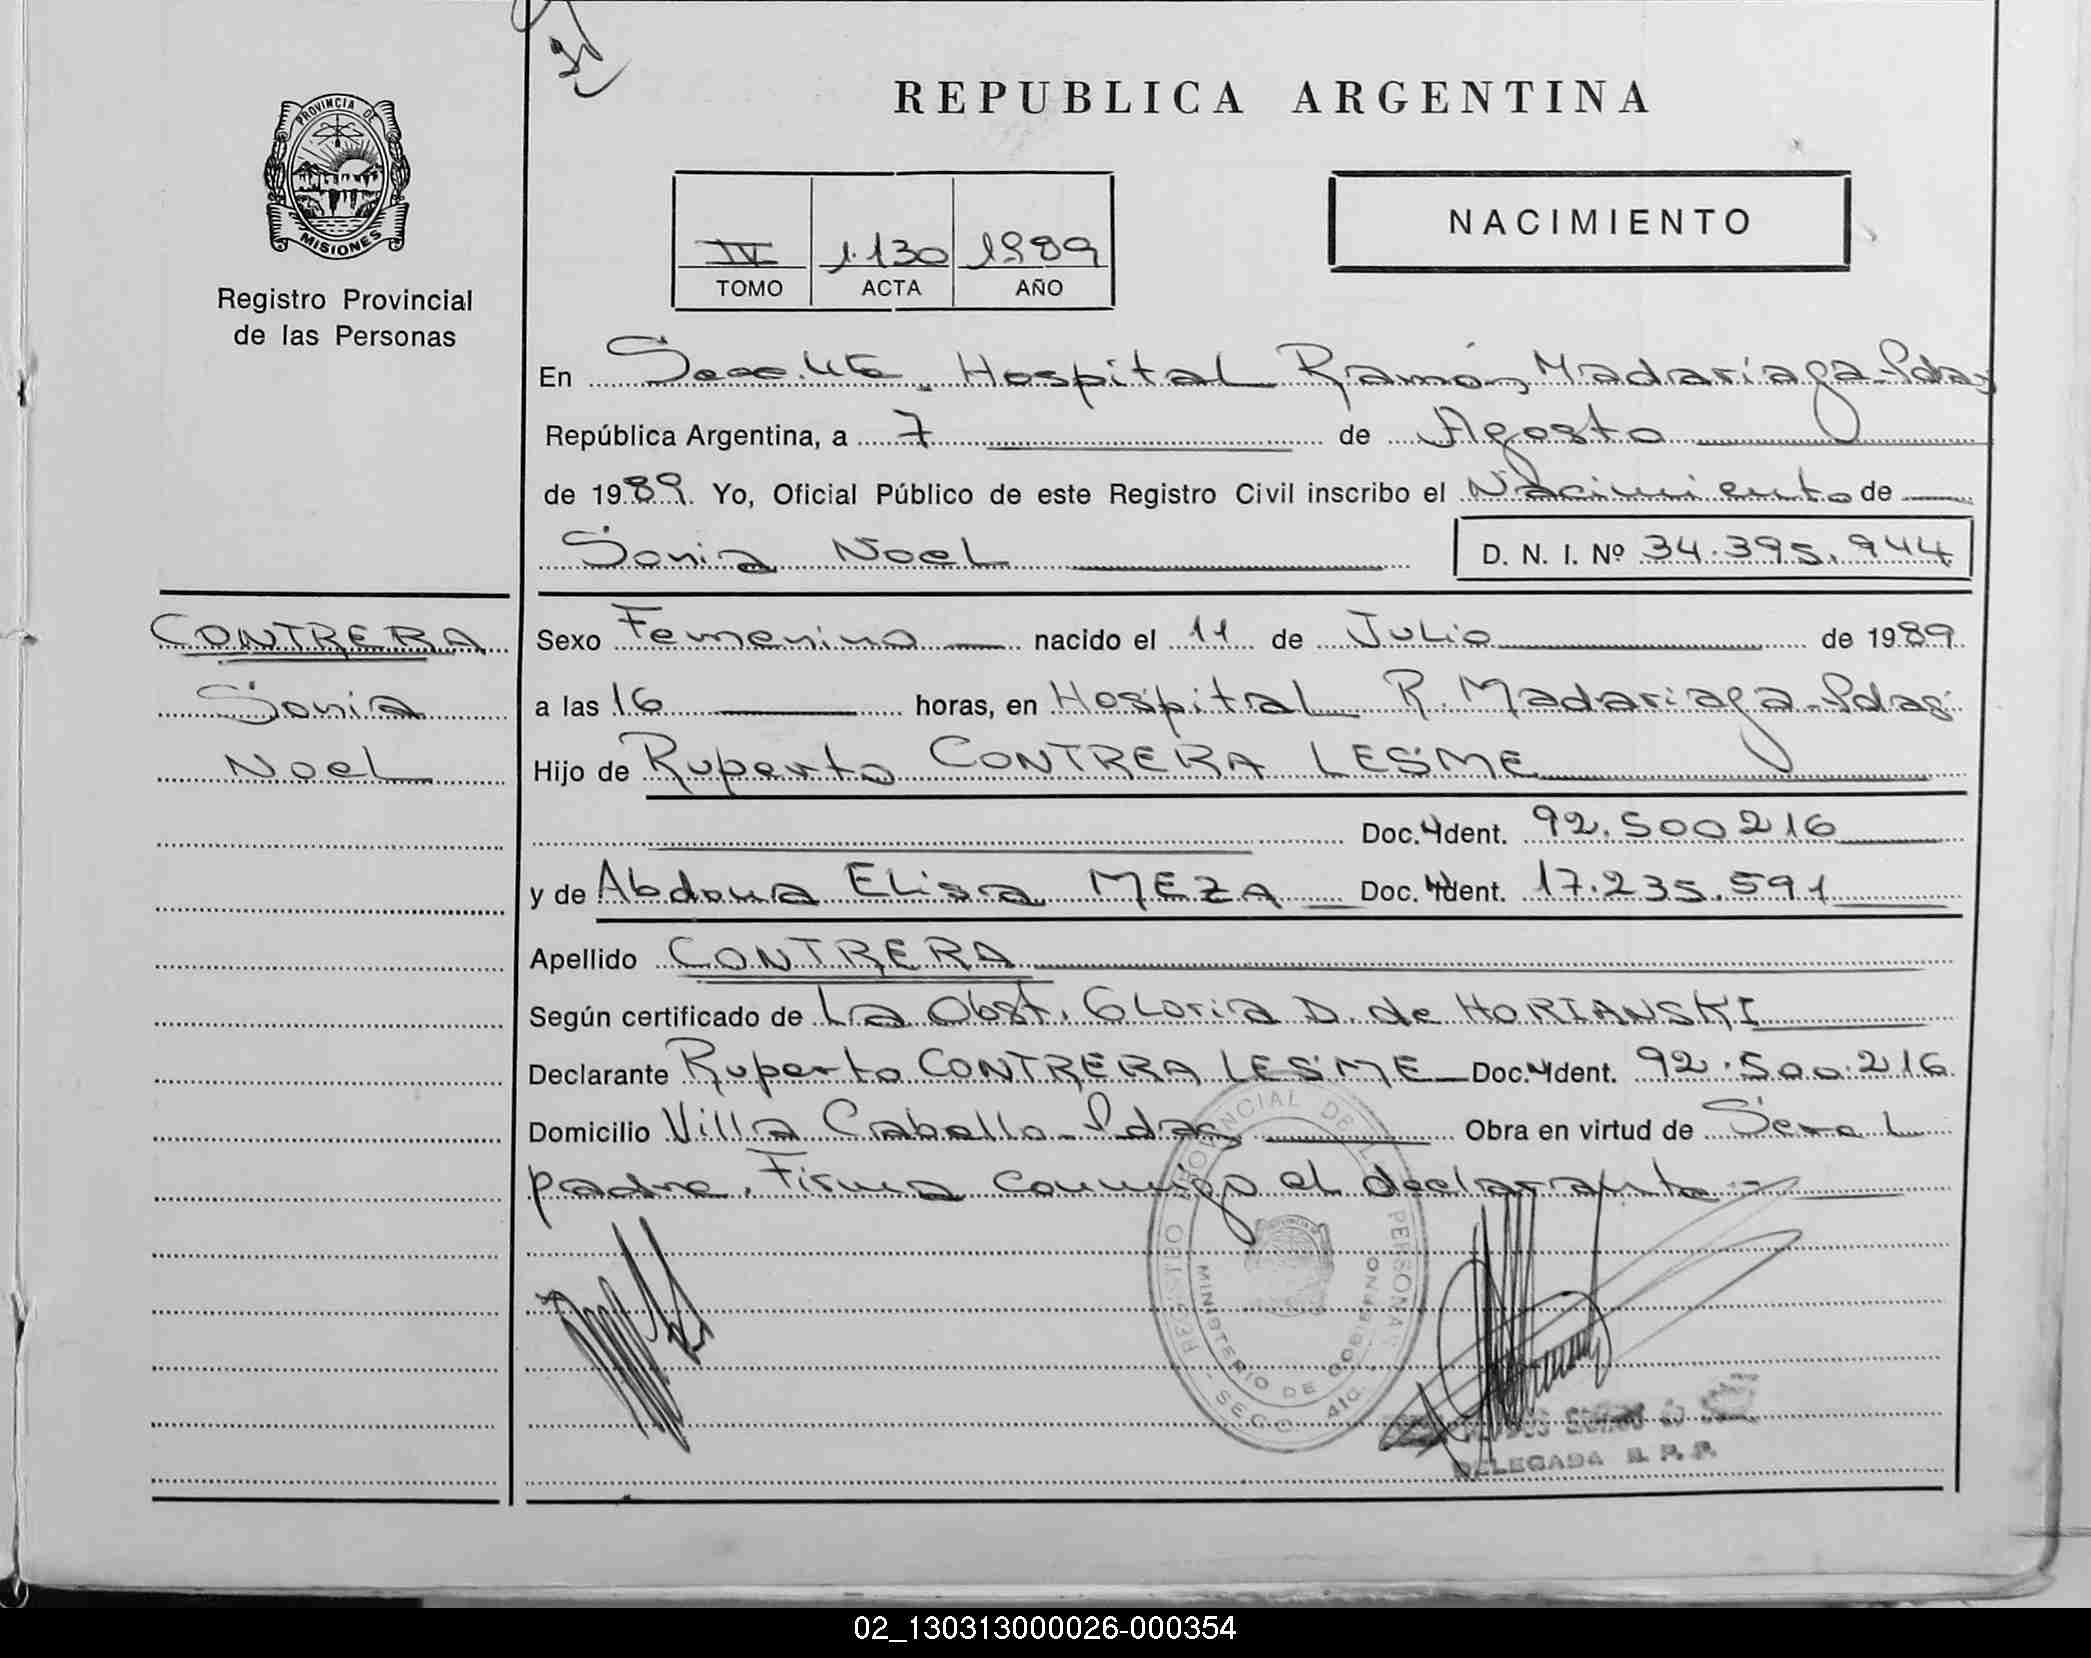 REPUBLICA ARGENTINA
PROVINCIA DE
MISIONES
Registro Provincial
de las Personas
NACIMIENTO
IV 1.130 1989
TOMO ACTA AÑO
En Secc. 4ta. Hospital Ramón Madariaga-Pdas
República Argentina, a 7 de Agosto
de 1989. Yo, Oficial Público de este Registro Civil inscribo el Nacimiento de
Sonia Noel D. N. I. Nº 34.395.944
CONTRERA
Sonia
Noel
Sexo Femenino nacido el 11 de Julio de 1989
a las 16 horas, en Hospital R. Madariaga-Pdas
Hijo de Ruperto CONTRERA LESME
Doc. Ident. 92.500216
y de Abdona Elisa MEZA Doc. Ident. 17.235.591
Apellido CONTRERA
Según certificado de La Obst. Gloria D. de HORIANSKI
Declarante Ruperto CONTRERA LESME Doc. Ident. 92.500.216
Domicilio Villa Cabello-Pdas Obra en virtud de Ser el
padre. Firma conmigo el declarante.-
REGISTRO PROVINCIAL DE PERSONAS
MINISTERIO DE GOBIERNO
DELEGADA R. P. P.
02_130313000026-000354